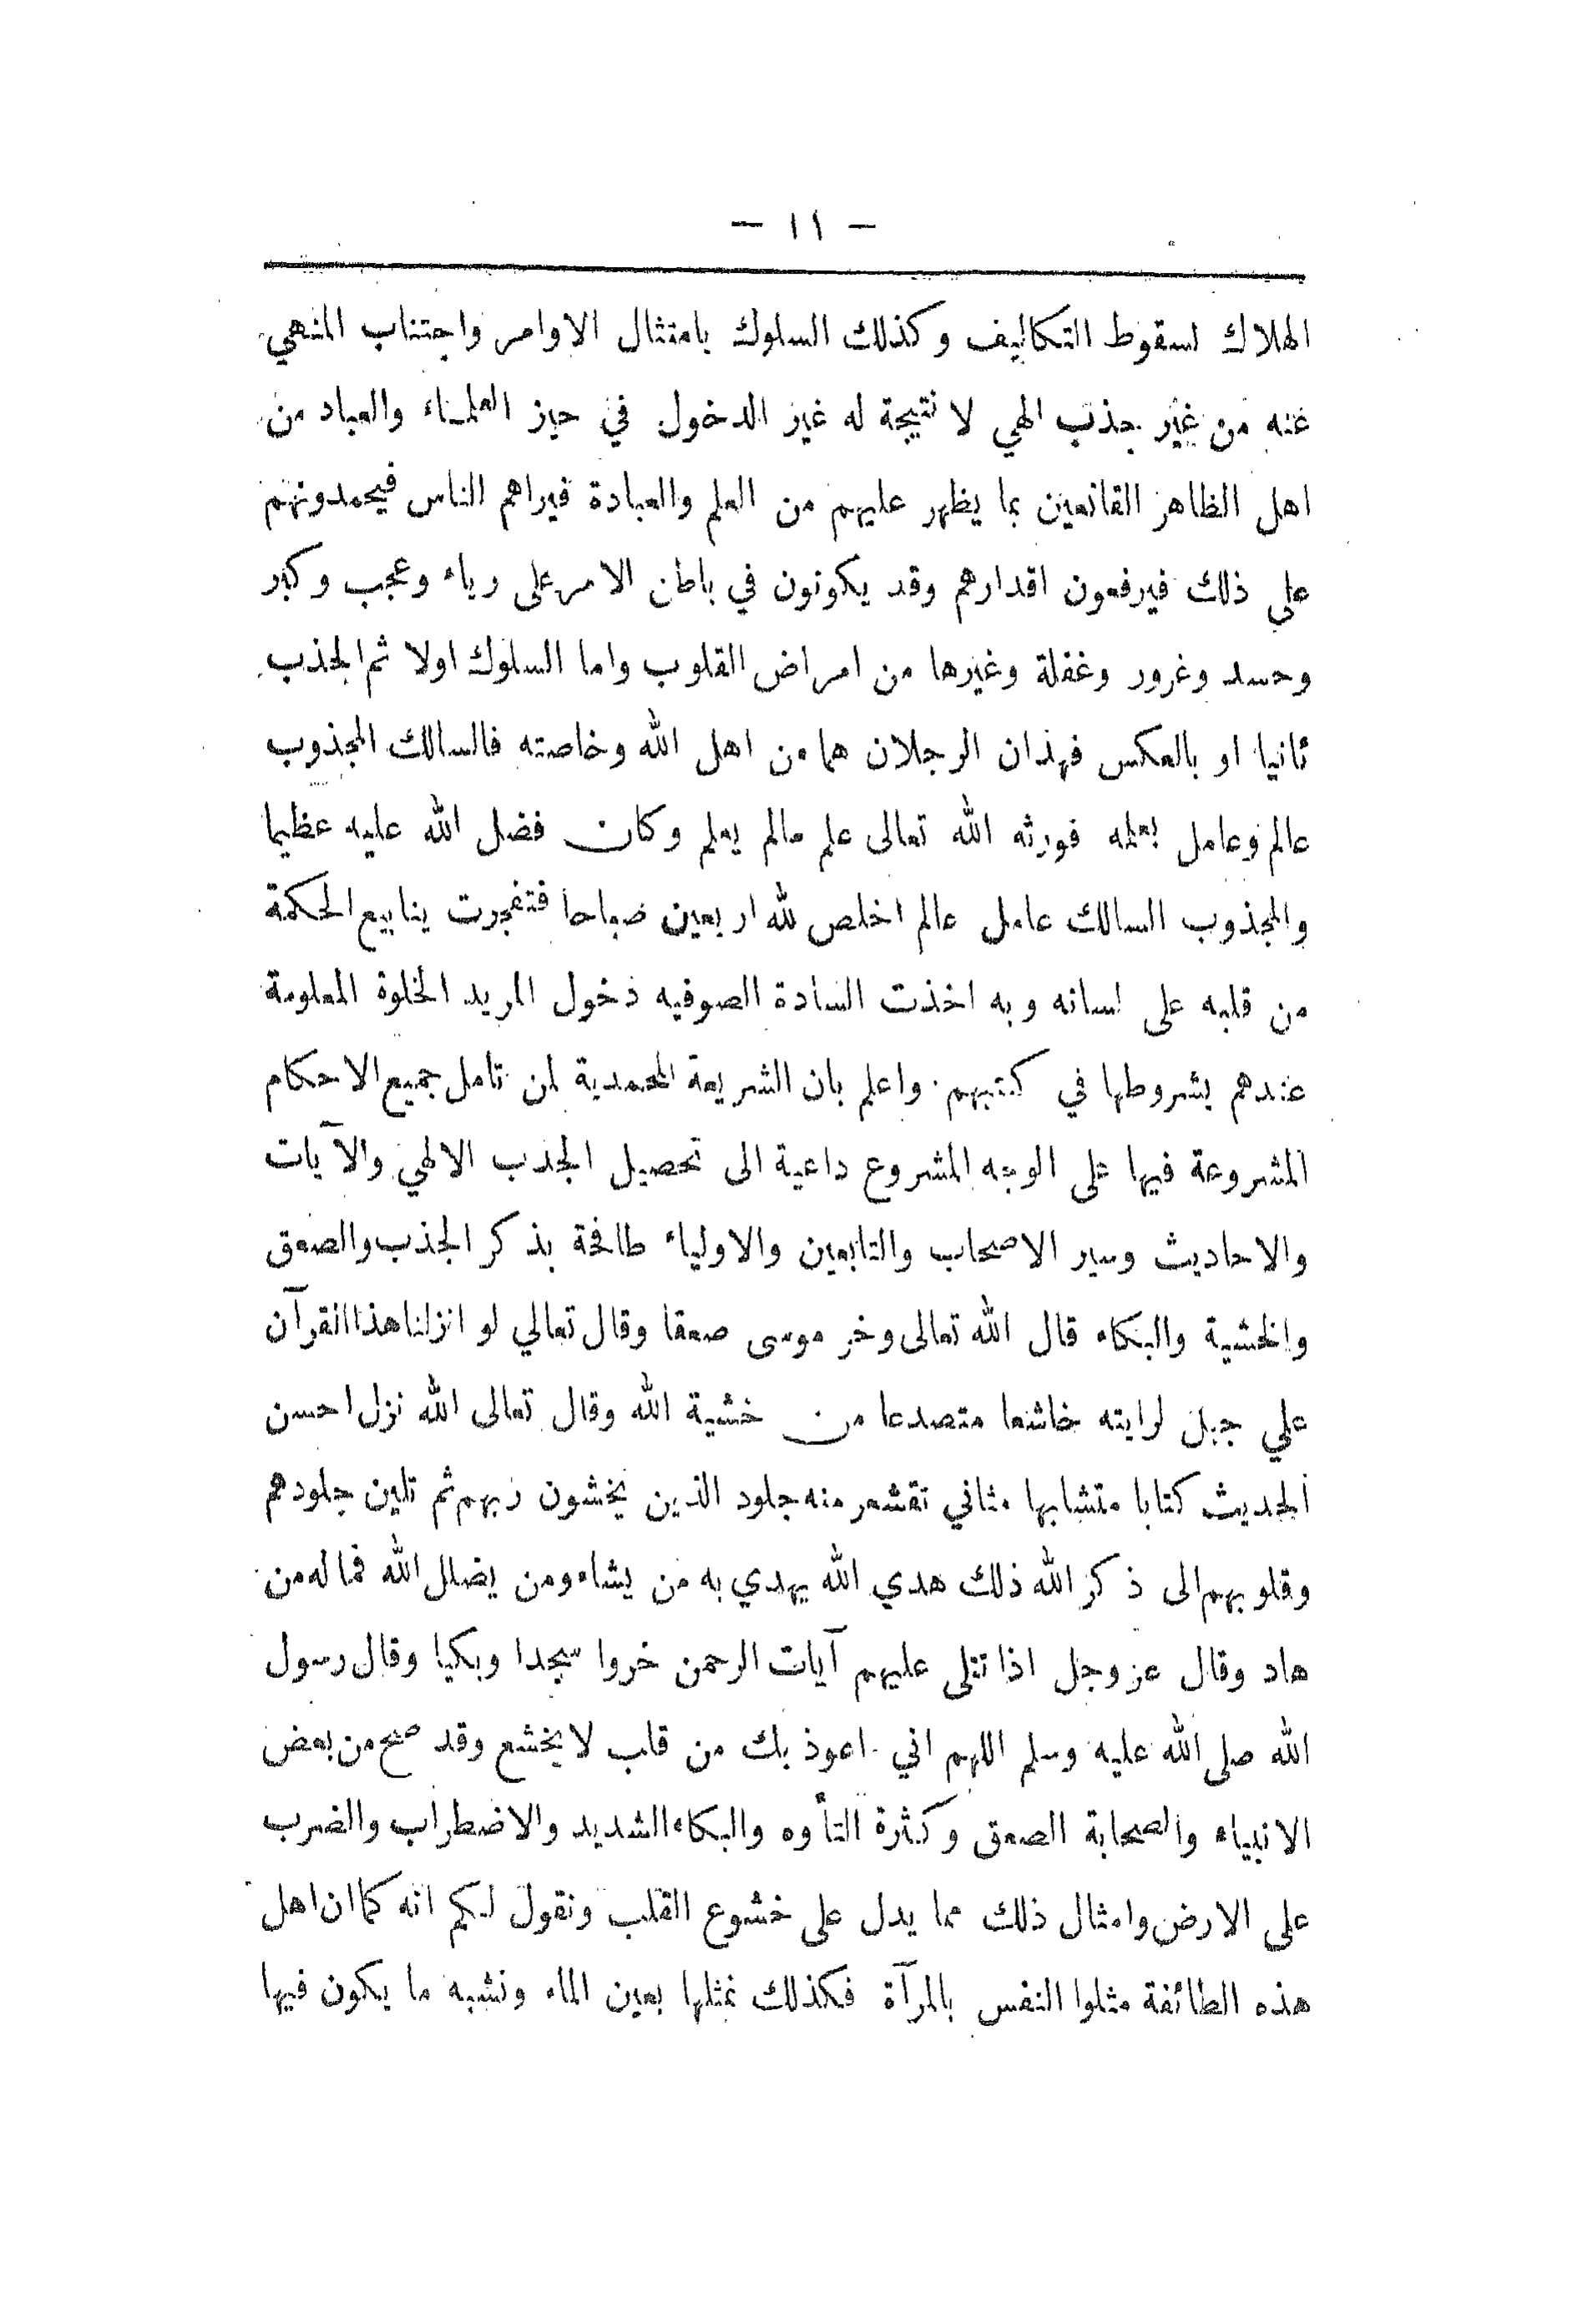 — ١١ —
الهلاك لسقوط التكاليف وكذلك السلوك بامتثال الاوامر واجتناب المنهي
عنه من غير جذب الهي لا نتيجة له غير الدخول في حيز العلماء والعباد من
اهل الظاهر القانعين بما يظهر عليهم من العلم والعبادة فيراهم الناس فيحمدونهم
على ذلك فيرفعون اقدارهم وقد يكونون في باطن الامر على رياء وعجب وكبر
وحسد وغرور وغفلة وغيرها من امراض القلوب واما السلوك اولا ثم الجذب
ثانيا او بالعكس فهذان الرجلان هما من اهل الله وخاصته فالسالك المجذوب
عالم وعامل بعلمه فورثه الله تعالى علم مالم يعلم وكان فضل الله عليه عظيما
والمجذوب السالك عامل عالم اخلص لله اربعين صباحا فتفجرت ينابيع الحكمة
من قلبه على لسانه وبه اخذت السادة الصوفيه دخول المريد الخلوة المعلومة
عندهم بشروطها في كتبهم واعلم بان الشريعة المحمدية لمن تامل جميع الاحكام
المشروعة فيها على الوجه المشروع داعية الى تحصيل الجذب الالهي والآيات
والاحاديث وسير الاصحاب والتابعين والاولياء طافحة بذكر الجذب والصعق
والخشية والبكاء قال الله تعالى وخر موسى صعقا وقال تعالي لو انزلنا هذا القرآن
علي جبل لرايته خاشعا متصدعا من خشية الله وقال تعالى الله نزل احسن
الحديث كتابا متشابها مثاني تقشعر منه جلود الذين يخشون ربهم ثم تلين جلودهم
وقلوبهم الى ذكر الله ذلك هدي الله يهدي به من يشاء ومن يضلل الله فما له من
هاد وقال عز وجل اذا تتلى عليهم آيات الرحمن خروا سجدا وبكيا وقال رسول
الله صلى الله عليه وسلم اللهم اني اعوذ بك من قلب لا يخشع وقد صح من بعض
الانبياء والصحابة الصعق وكثرة التأوه والبكاء الشديد والاضطراب والضرب
على الارض وامثال ذلك مما يدل على خشوع القلب ونقول لكم انه كما ان اهل
هذه الطائفة مثلوا النفس بالمرآة فكذلك نمثلها بعين الماء ونشبه ما يكون فيها